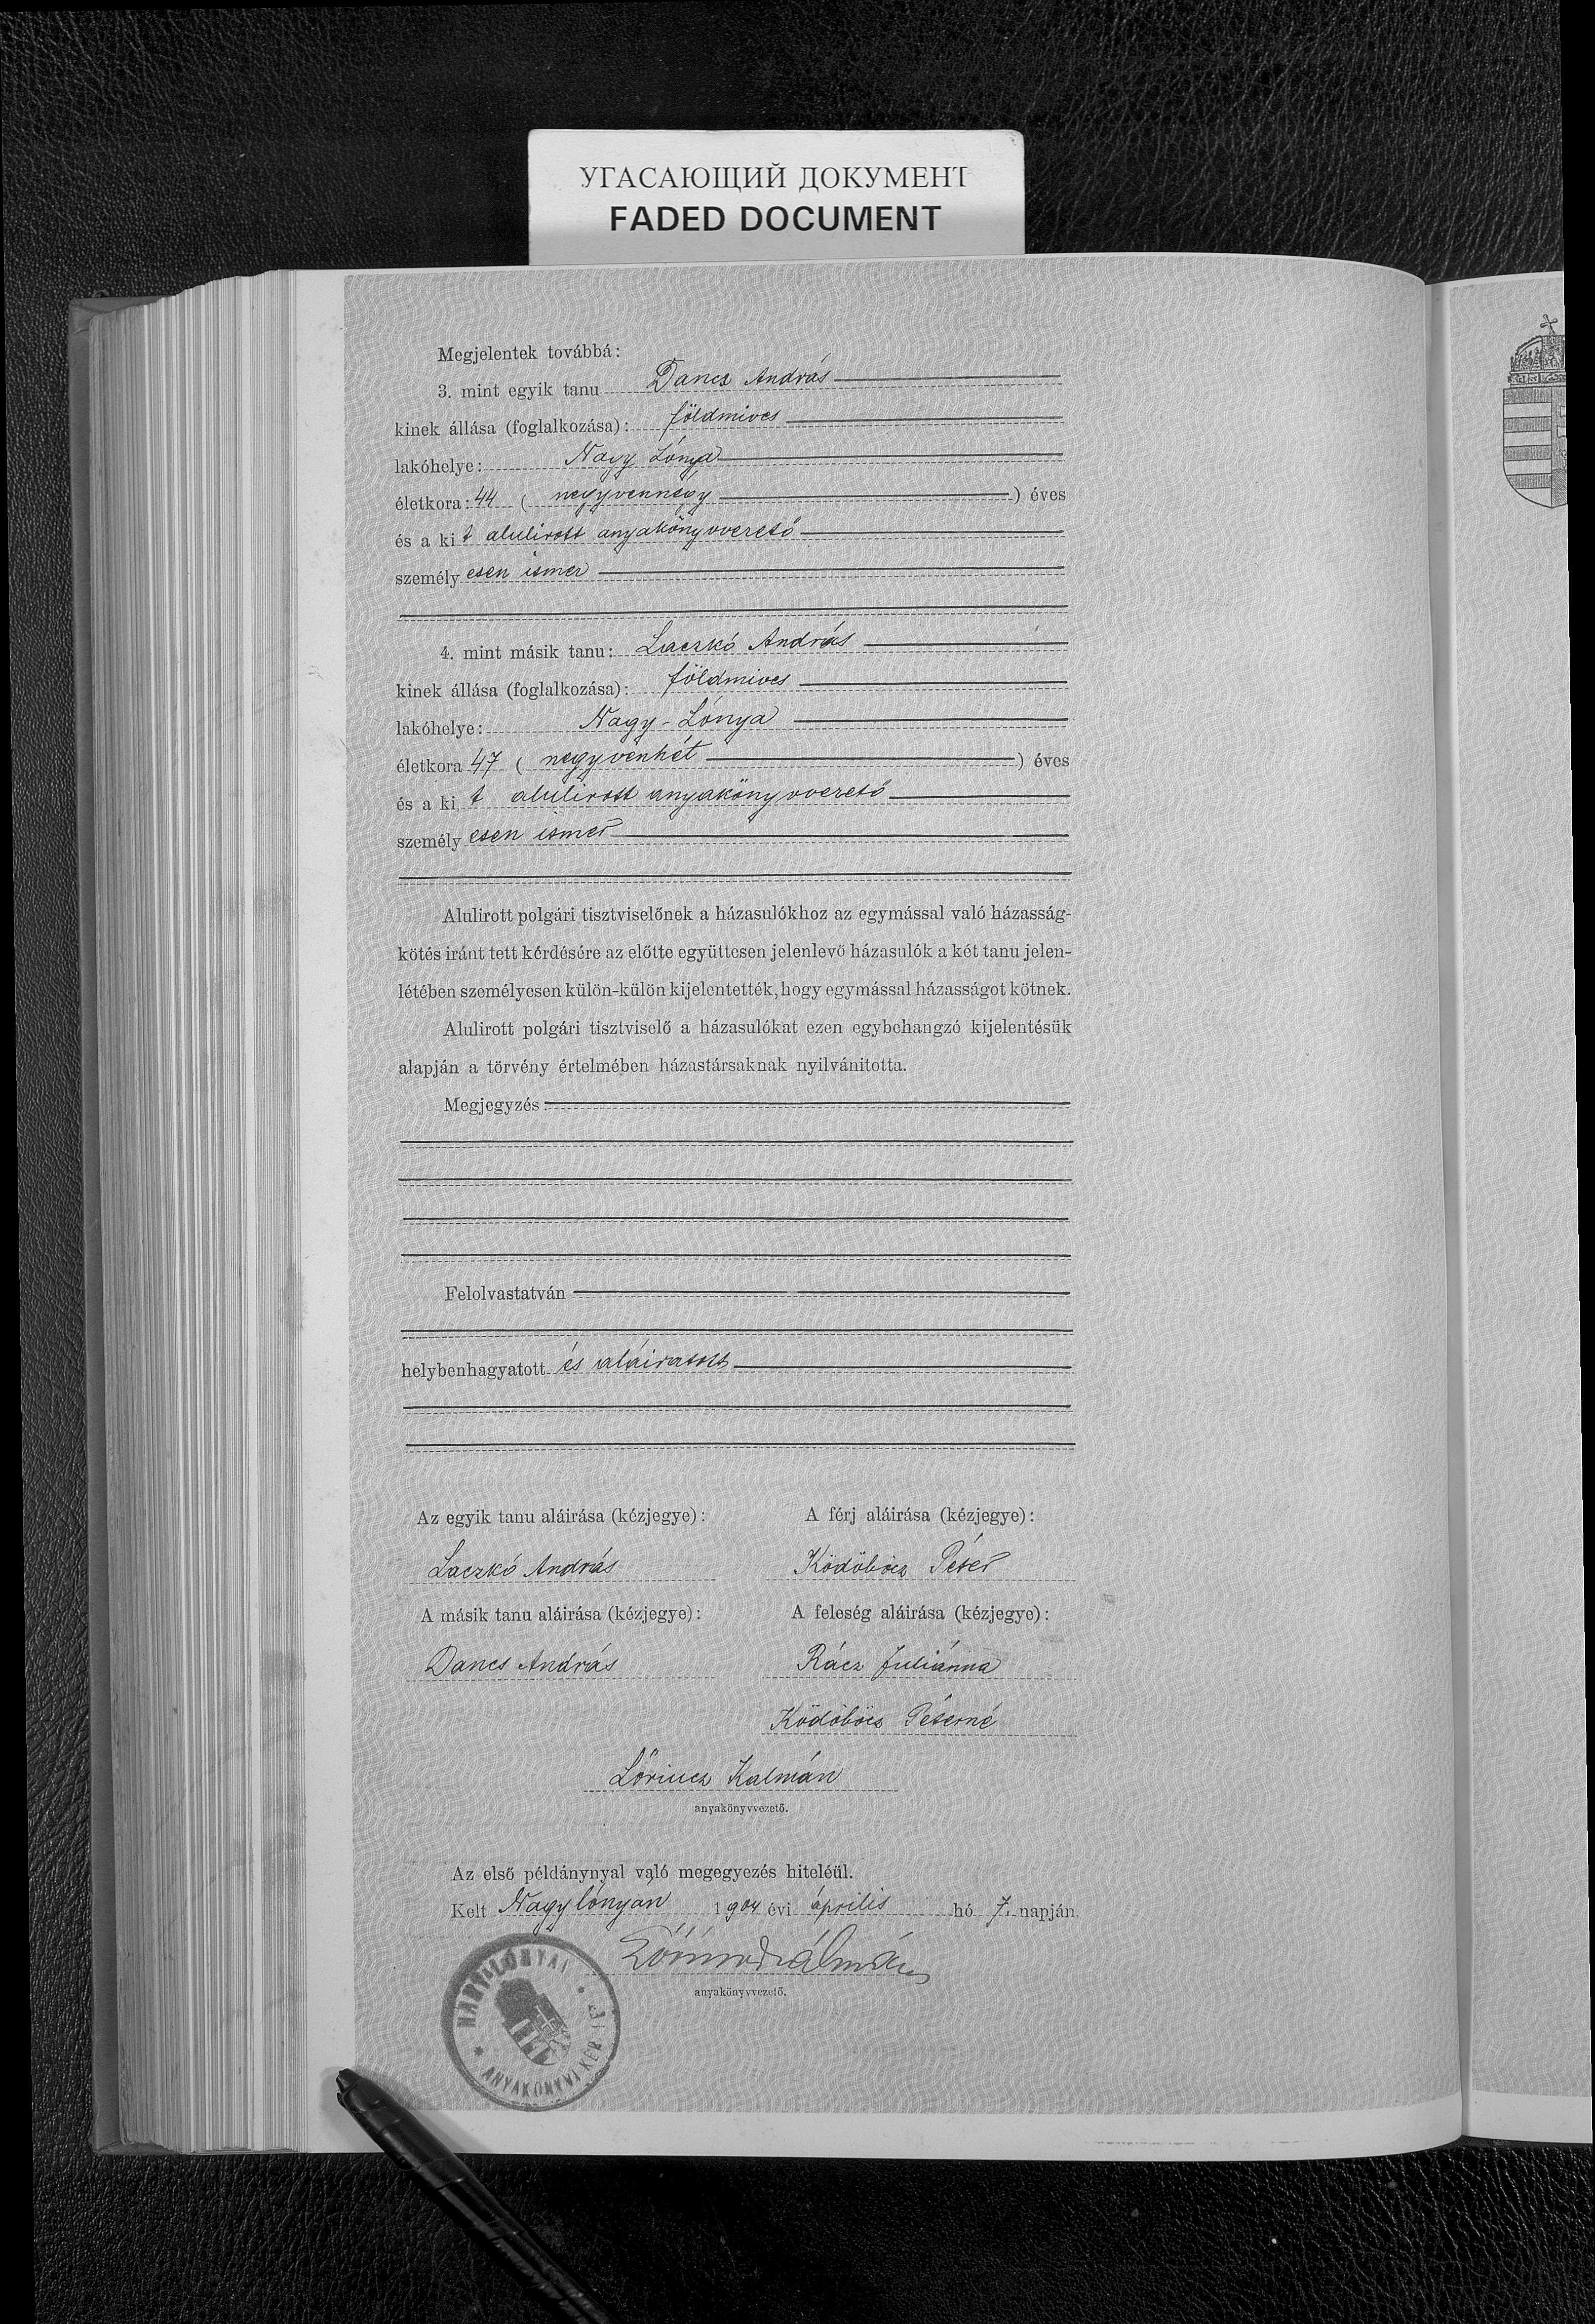 УГАСАЮЩИЙ ДОКУМЕНТ
FADED DOCUMENT
Megjelentek továbbá:
3. mint egyik tanu Dancs András
kinek állása (foglalkozása): földmives
lakóhelye: Nagy Lónya
életkora: 44 ( negyvennégy ) éves
és a ki t alulirott anyakönyvvezető
személy esen ismer
4. mint másik tanu: Laczkó András
kinek állása (foglalkozása): földmives
lakóhelye: Nagy-Lónya
életkora 47 ( negyvenhét ) éves
és a ki t alulirott anyakönyvvezető
személy esen ismer
Alulirott polgári tisztviselőnek a házasulókhoz az egymással való házasság-
kötés iránt tett kérdésére az előtte együttesen jelenlevő házasulók a két tanu jelen-
létében személyesen külön-külön kijelentették, hogy egymással házasságot kötnek.
Alulirott polgári tisztviselő a házasulókat ezen egybehangzó kijelentésük
alapján a törvény értelmében házastársaknak nyilvánitotta.
Megjegyzés:
Felolvastatván
helybenhagyatott és aláiratott
Az egyik tanu aláirása (kézjegye): A férj aláirása (kézjegye):
Laczkó András Ködöböcz Péter
A másik tanu aláirása (kézjegye): A feleség aláirása (kézjegye):
Dancs András Rácz Juliánna
Ködöböcs Péterné
Lőrincz Kálmán
anyakönyvvezető.
Az első példánynyal való megegyezés hiteléül.
Kelt Nagylónyán 1904 évi április hó 7. napján
anyakönyvvezető.
NAGY-LÓNYAI
ANYAKÖNYVI KER